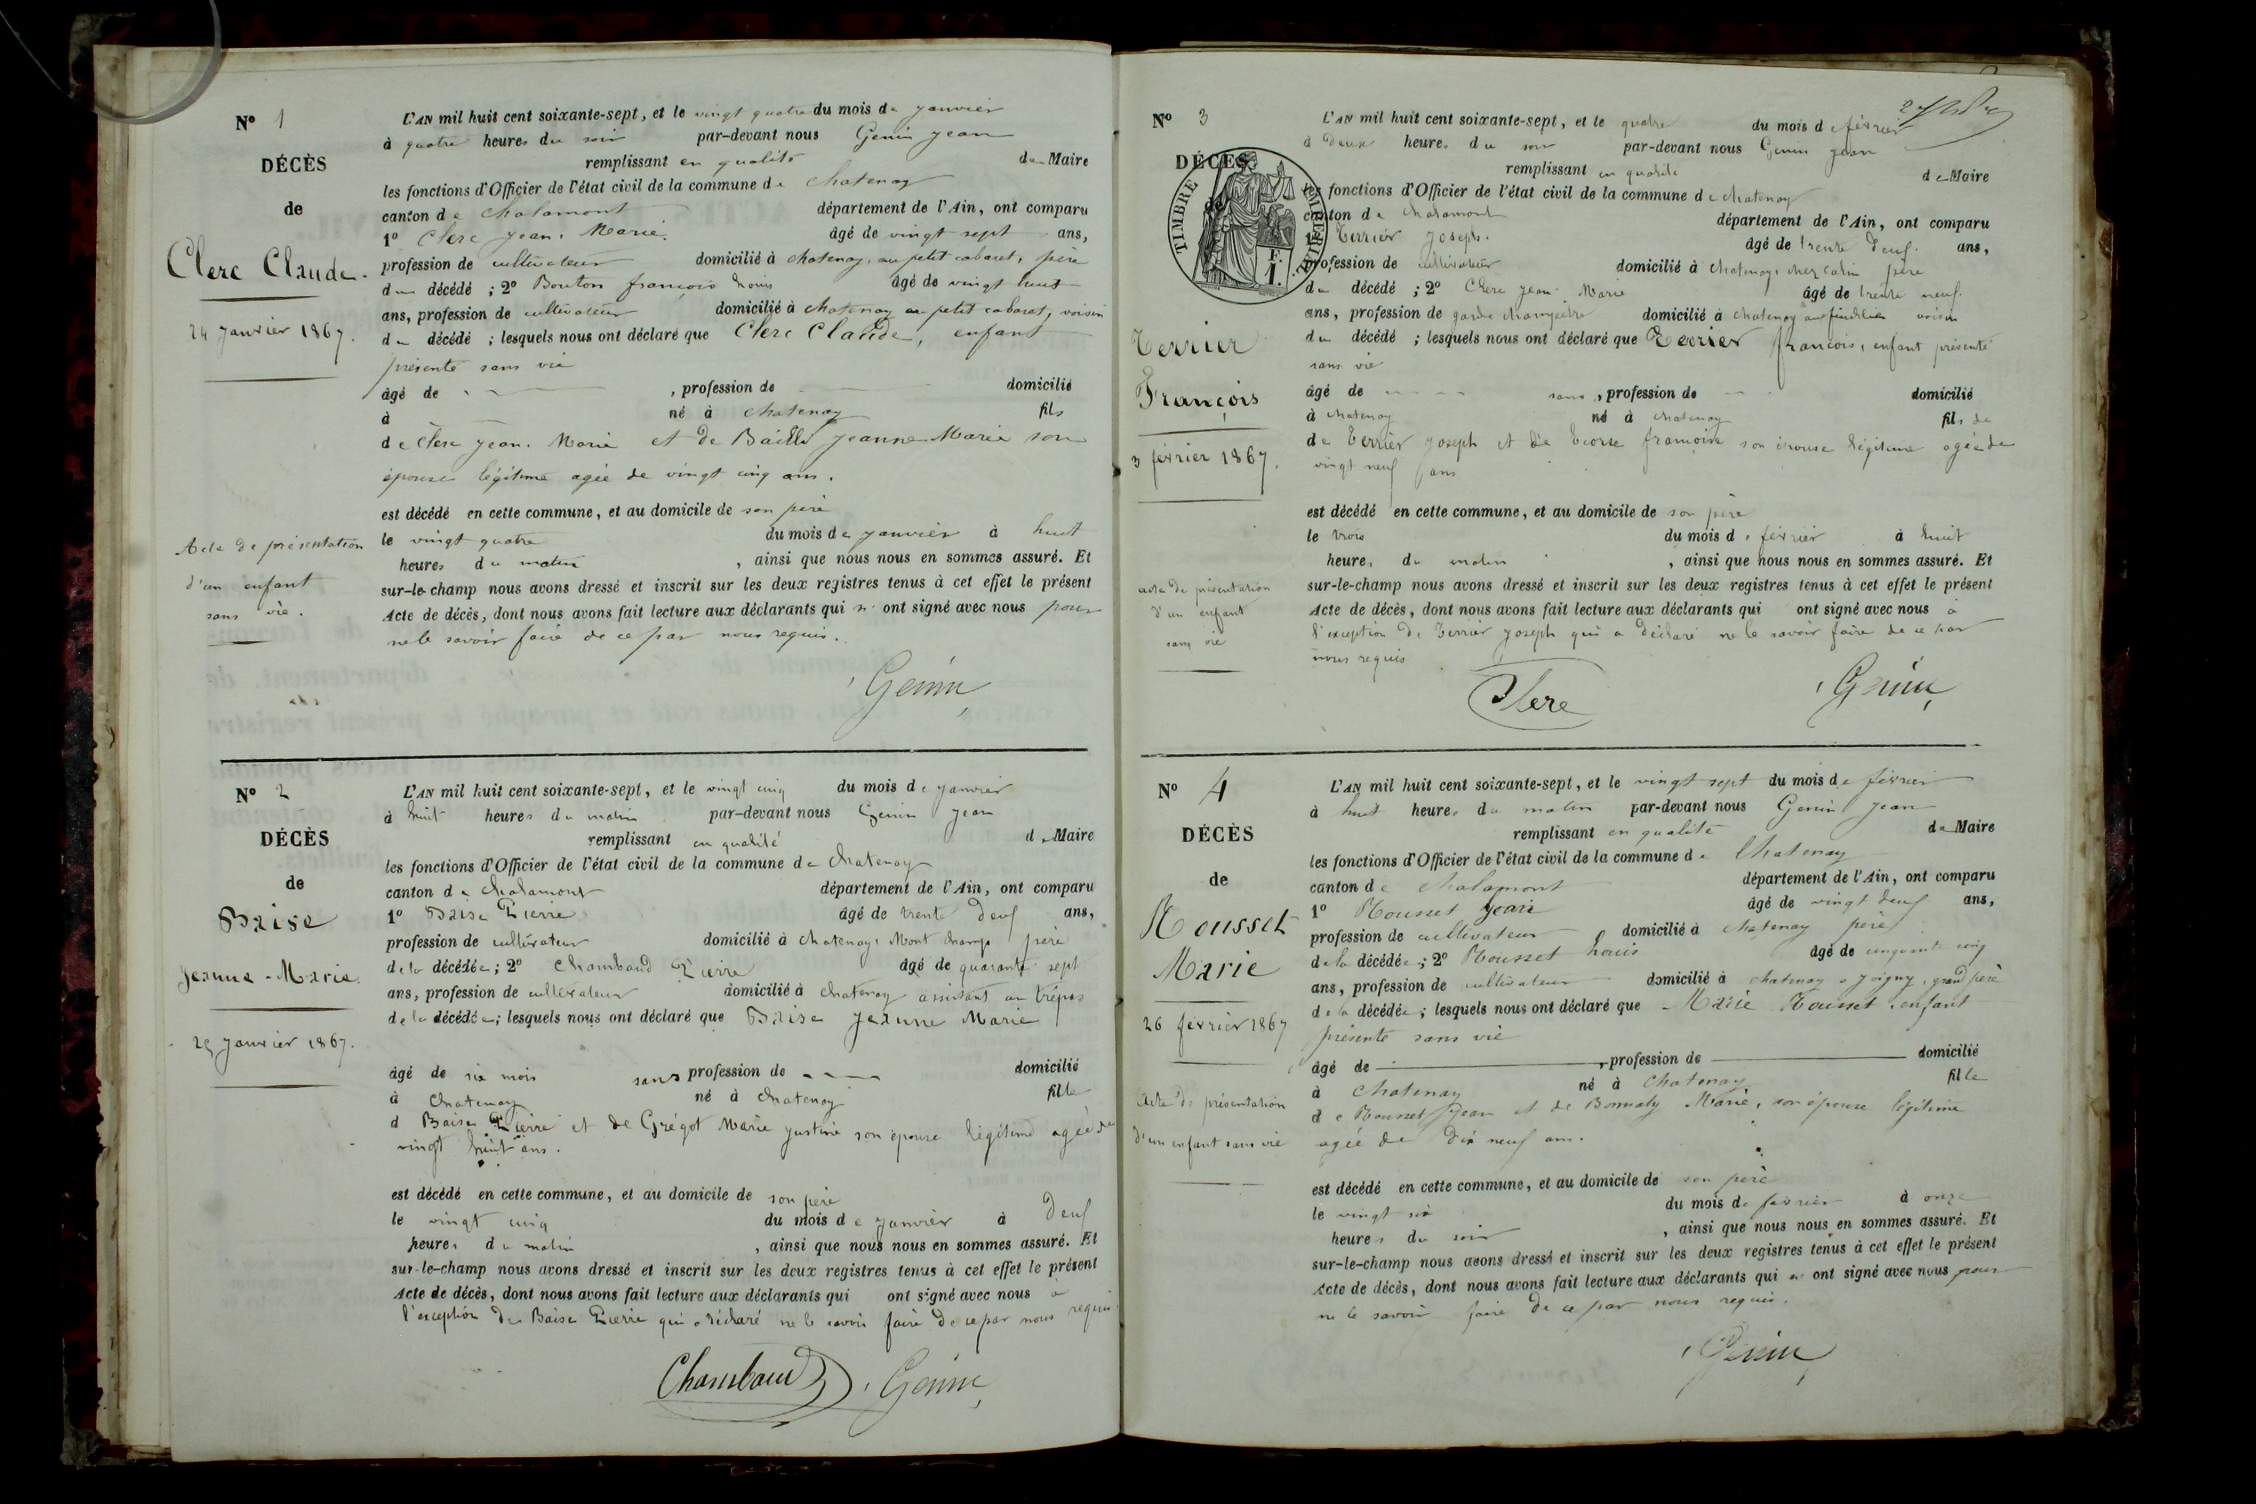 N° 1
DÉCÈS
de
Clerc Claude.
24 janvier 1867.
Acte de présentation
d'un enfant
sans vie.
L'AN mil huit cent soixante-sept, et le vingt quatre du mois de janvier
à quatre heures du soir par-devant nous Genin Jean
remplissant en qualité de Maire
les fonctions d'Officier de l'état civil de la commune de Chatenay
canton de Chalamont département de l'Ain, ont comparu
1° Clerc Jean Marie. âgé de vingt sept ans,
profession de cultivateur domicilié à Chatenay, au petit cabaret, père
du décédé ; 2° Bouton françois Louis âgé de vingt huit
ans, profession de cultivateur domicilié à Chatenay au petit cabaret, voisin
du décédé ; lesquels nous ont déclaré que Clerc Claude, enfant
présenté sans vie
âgé de , profession de domicilié
à né à Chatenay fils
de Clerc Jean Marie et de Bailli Jeanne Marie son
épouse légitime agée de vingt cinq ans.
est décédé en cette commune, et au domicile de son père
le vingt quatre du mois de janvier à huit
heures du matin , ainsi que nous nous en sommes assuré. Et
sur-le-champ nous avons dressé et inscrit sur les deux registres tenus à cet effet le présent
Acte de décès, dont nous avons fait lecture aux déclarants qui n' ont signé avec nous pour
ne le savoir faire de ce par nous requis.
Genin
N° 2
DÉCÈS
de
Baise
Jeanne-Marie
25 janvier 1867.
L'AN mil huit cent soixante-sept, et le vingt cinq du mois de janvier
à huit heures du matin par-devant nous Genin Jean
remplissant en qualité de Maire
les fonctions d'Officier de l'état civil de la commune de Chatenay
canton de Chalamont département de l'Ain, ont comparu
1° Baise Pierre âgé de trente deuf ans,
profession de cultivateur domicilié à Chatenay, Mont champ père
de la décédée ; 2° Chambaud Pierre âgé de quarante sept
ans, profession de cultivateur domicilié à Chatenay assistant au trépas
de la décédée ; lesquels nous ont déclaré que Baise Jeanne Marie
âgé de six mois sans profession de domicilié
à Chatenay né à Chatenay fille
d Baise Pierre et de Grégot Marie Justine son épouse légitime agée de
vingt huit ans.
est décédé en cette commune, et au domicile de son père
le vingt cinq du mois de janvier à deuf
heures du matin , ainsi que nous nous en sommes assuré. Et
sur-le-champ nous avons dressé et inscrit sur les deux registres tenus à cet effet le présent
Acte de décès, dont nous avons fait lecture aux déclarants qui ont signé avec nous à
l'exception de Baise Pierre qui a déclaré ne le savoir faire de ce par nous requis
Chambaud Genin
N° 3
DÉCÈS
de
TIMBRE IMPERIAL
1 F.
Terrier
François
3 février 1867.
acte de présentation
d'un enfant
sans vie
L'AN mil huit cent soixante-sept, et le quatre du mois de février
à deux heures du soir par-devant nous Genin Jean
remplissant en qualité de Maire
les fonctions d'Officier de l'état civil de la commune de Chatenay
canton de Chalamont département de l'Ain, ont comparu
Terrier Joseph. âgé de trente deuf. ans,
profession de cultivateur domicilié à Chatenay, chez Calin père
du décédé ; 2° Clerc Jean Marie âgé de trente neuf.
ans, profession de garde champêtre domicilié à Chatenay voisin
du décédé ; lesquels nous ont déclaré que Terrier françois, enfant présenté
sans vie
âgé de sans , profession de domicilié
à Chatenay né à Chatenay fils de
de Terrier Joseph et de françoise son épouse légitime agée de
vingt neuf ans
est décédé en cette commune, et au domicile de son père
le trois du mois de février à huit
heures du matin , ainsi que nous nous en sommes assuré. Et
sur-le-champ nous avons dressé et inscrit sur les deux registres tenus à cet effet le présent
Acte de décès, dont nous avons fait lecture aux déclarants qui ont signé avec nous à
l'exception de Terrier Joseph qui a déclaré ne le savoir faire de ce par
nous requis
Clerc Genin
N° 4
DÉCÈS
de
Rousset
Marie
26 février 1867
Acte de présentation
d'un enfant sans vie
L'AN mil huit cent soixante-sept, et le vingt sept du mois de février
à huit heures du matin par-devant nous Genin Jean
remplissant en qualité de Maire
les fonctions d'Officier de l'état civil de la commune de Chatenay
canton de Chalamont département de l'Ain, ont comparu
1° Rousset Jean âgé de vingt deuf ans,
profession de cultivateur domicilié à Chatenay père
de la décédée ; 2° Rousset Louis âgé de cinquante cinq
ans, profession de cultivateur domicilié à Chatenay a Joigny, grand père
de la décédée ; lesquels nous ont déclaré que Marie Rousset enfant
présenté sans vie
âgé de , profession de domicilié
à Chatenay né à Chatenay fille
de Rousset Jean et de Bonnaty Marie, son épouse légitime
agée de dix neuf ans.
est décédé en cette commune, et au domicile de son père
le vingt six du mois de février à onze
heures du soir , ainsi que nous nous en sommes assuré. Et
sur-le-champ nous avons dressé et inscrit sur les deux registres tenus à cet effet le présent
Acte de décès, dont nous avons fait lecture aux déclarants qui n' ont signé avec nous pour
ne le savoir faire de ce par nous requis.
Genin